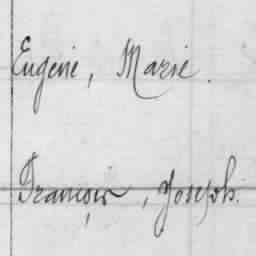 Eugène, Marie.
François, Joseph.